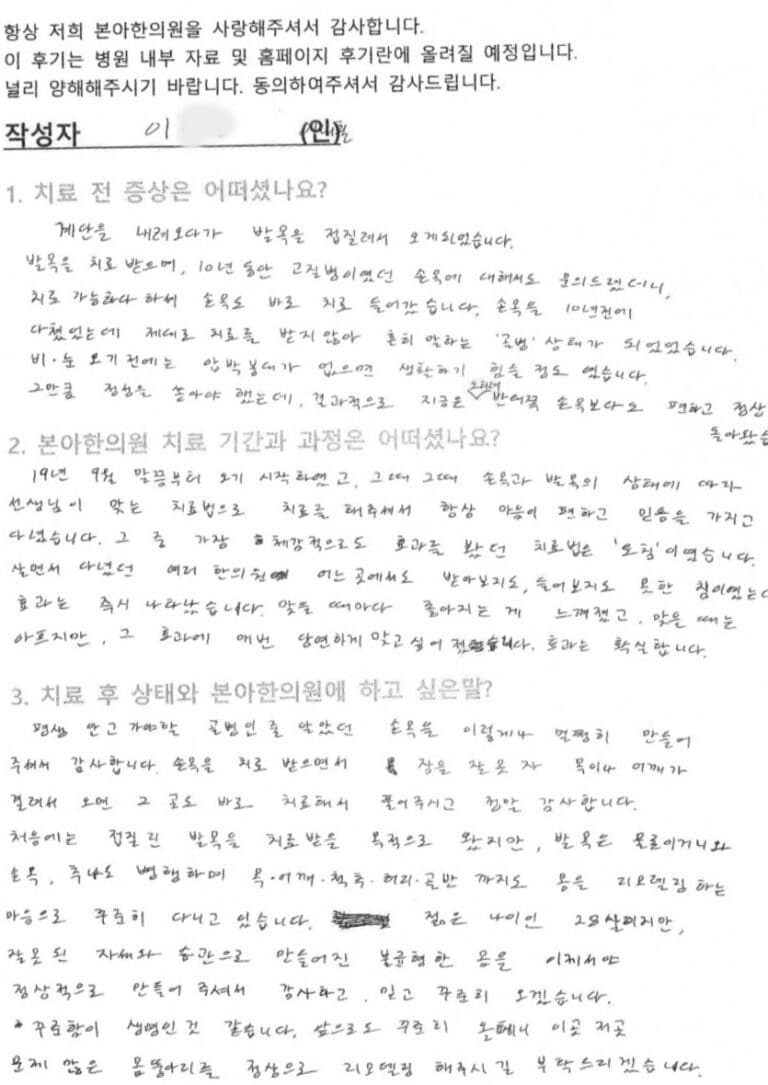 항상 저희 본아한의원을 사랑해주셔서 감사합니다.
이 후기는 병원 내부 자료 및 홈페이지 후기란에 올려질 예정입니다.
널리 양해해주시기 바랍니다. 동의하여주셔서 감사드립니다.
작성자 이 (인)
1. 치료 전 증상은 어떠셨나요?
계단을 내려오다가 발목을 접질려서 오게되었습니다.
발목을 치료 받으며, 10년 동안 고질병이였던 손목에 대해서도 문의드렸더니,
치료 가능하다 하셔 손목도 바로 치료 들어갔습니다. 손목을 10년전에
다쳤었는데 제대로 치료를 받지 않아 흔히 말하는 '골병' 상태가 되었었습니다.
비·눈 오기 전에는 압박붕대가 없으면 생활하기 힘들 정도 였습니다.
그만큼 정성을 쏟아야 했는데, 결과적으로 지금은 오히려 반대쪽 손목보다도 편하고 정상
돌아왔습
2. 본아한의원 치료 기간과 과정은 어떠셨나요?
19년 9월 말쯤부터 오기 시작하였고, 그때 그때 손목과 발목의 상태에 따라
선생님이 맞는 치료법으로 치료를 해주셔서 항상 마음이 편하고 믿음을 가지고
다녔습니다. 그 중 가장 체감적으로도 효과를 봤던 치료법은 '도침'이였습니다.
살면서 다녔던 여러 한의원 어느 곳에서도 받아보지도, 들어보지도 못한 침이였는데
효과는 즉시 나타났습니다. 맞을 때마다 좋아지는 게 느껴졌고, 맞을 때는
아프지만, 그 효과에 매번 당연하게 맞고 싶어 졌습니다. 효과는 확실합니다.
3. 치료 후 상태와 본아한의원에 하고 싶은말?
평생 안고 가야할 골병인 줄 알았던 손목을 이렇게나 멀쩡히 만들어
주셔서 감사합니다. 손목을 치료 받으면서 잠을 잘못 자 목이나 어깨가
결려서 오면 그 곳도 바로 치료해서 풀어주시고 정말 감사합니다.
처음에는 접질린 발목을 치료받을 목적으로 왔지만, 발목은 물론이거니와
손목, 추나도 병행하며 목·어깨·척추·허리·골반 까지도 몸을 리모델링 하는
마음으로 꾸준히 다니고 있습니다. 젊은 나이인 28살이지만,
잘못 된 자세와 습관으로 만들어진 불균형한 몸을 이제서야
정상적으로 만들어 주셔서 감사하고, 믿고 꾸준히 오겠습니다.
꾸준함이 생명인 것 같습니다. 앞으로도 꾸준히 올테니 이곳 저곳
문제 많은 몸뚱아리를 정상으로 리모델링 해주시길 부탁드리겠습니다.